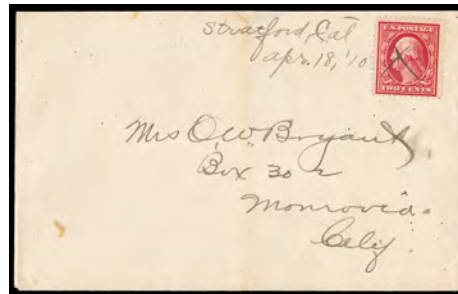 Stratford, Cal
Apr. 18, '10
U.S. POSTAGE
TWO CENTS
Mrs O.W. Bryant,
Box 302
Monrovia.
Calif.